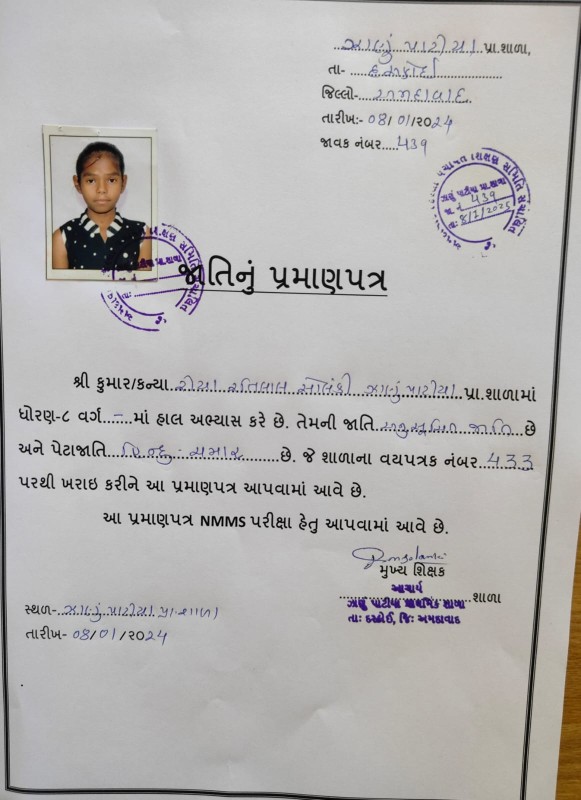 ઝાણું પાટીયા પ્રા.શાળા,
તા- દસ્ક્રોઈ
જિલ્લો- અમદાવાદ
તારીખ:- 08/01/2024
જાવક નંબર.....439
ઝાણું પાટીયા પ્રા.શાળા
439
તા: 8/1/2025
જાતિનું પ્રમાણપત્ર
શ્રી કુમાર/કન્યા રીયા રતિલાલ સોલંકી ઝાણું પાટીયા પ્રા.શાળામાં
ધોરણ-૮ વર્ગ...–...માં હાલ અભ્યાસ કરે છે. તેમની જાતિ અનુસુચિત જાતિ છે
અને પેટાજાતિ હિન્દુ - ચમાર છે. જે શાળાના વયપત્રક નંબર 433
પરથી ખરાઇ કરીને આ પ્રમાણપત્ર આપવામાં આવે છે.
આ પ્રમાણપત્ર NMMS પરીક્ષા હેતુ આપવામાં આવે છે.
મુખ્ય શિક્ષક
આચાર્ય
શાળા
ઝાણું પાટીયા પ્રાથમિક શાળા
તા: દસ્ક્રોઈ, જિ: અમદાવાદ
સ્થળ- ઝાણું પાટીયા પ્રા.શાળા
તારીખ- 08/01/2024